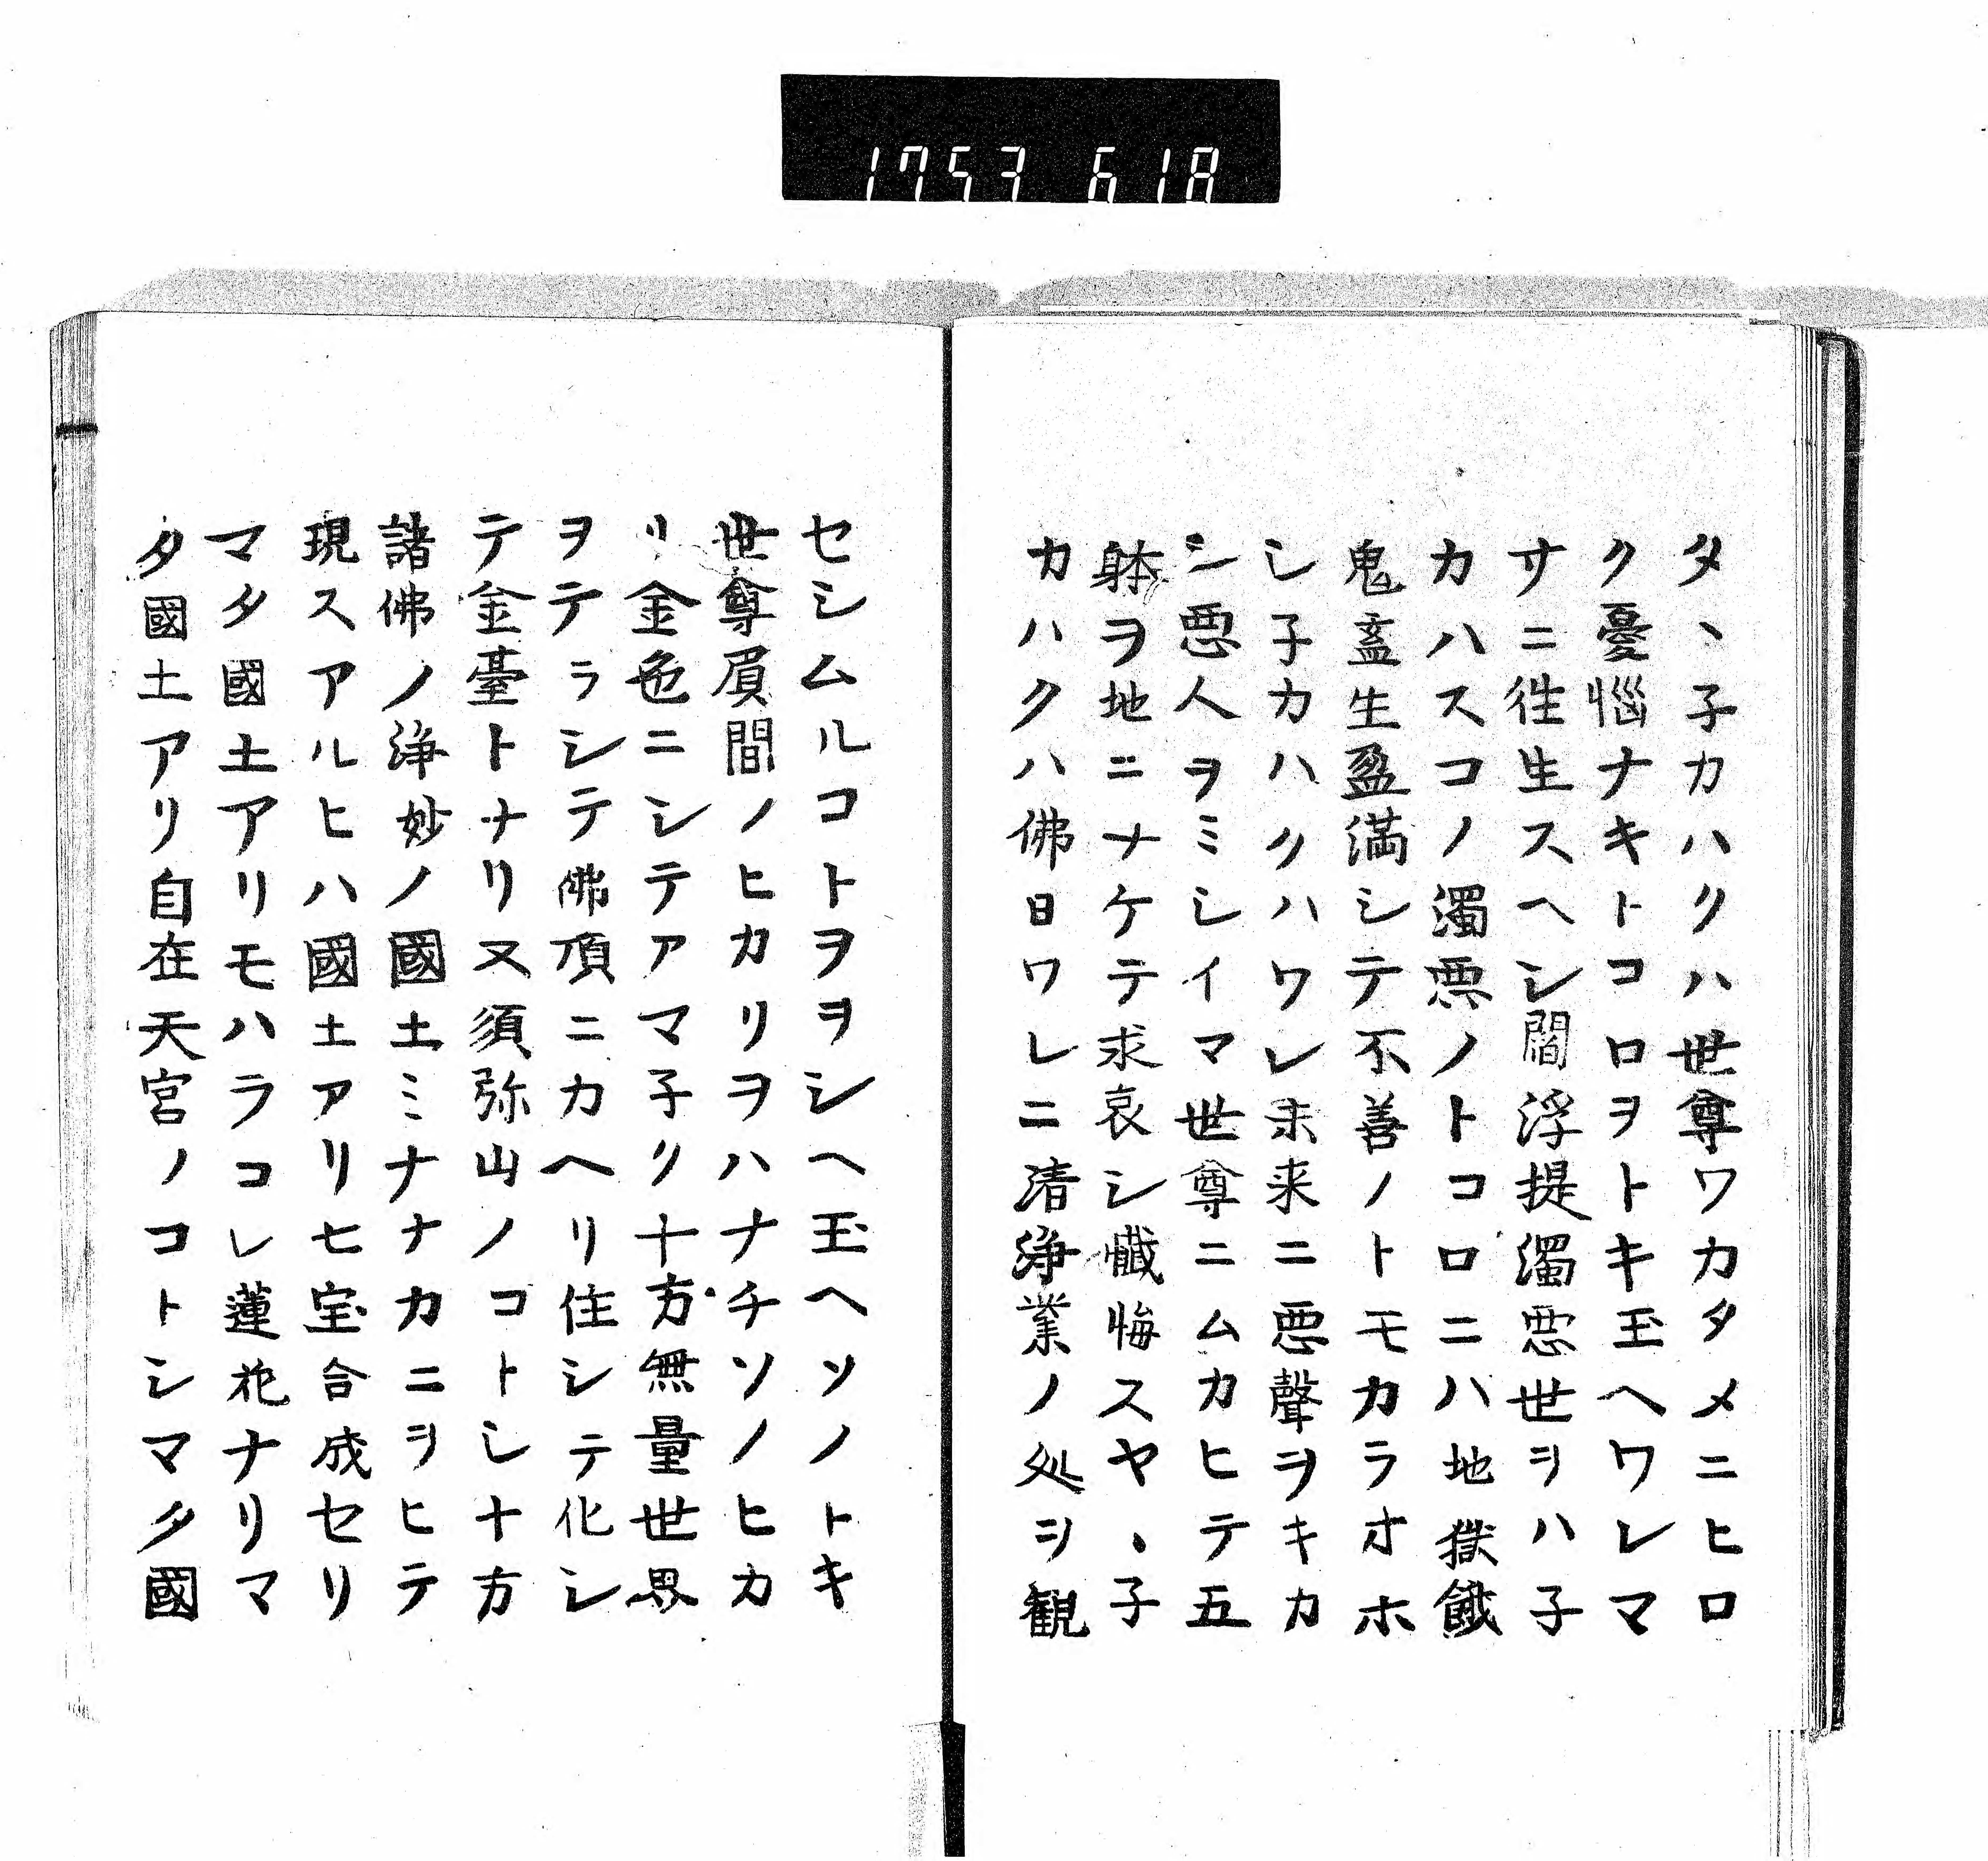 1753 618
タヽ子カハクハ世尊ワカタメニヒロ
ク憂惱ナキトコロヲトキ玉ヘワレマ
サニ往生スヘシ閻浮提濁悪世ヲハ子
カハスコノ濁悪ノトコロニハ地獄餓
鬼畜生盈満シテ不善ノトモカラオホ
シ子カハクハワレ未来ニ悪聲ヲキカ
シ悪人ヲミシイマ世尊ニムカヒテ五
躰ヲ地ニナケテ求哀シ懺悔スヤヽ子
カハクハ佛日ワレニ清浄業ノ処ヲ観
セシムルコトヲヲシヘ玉ヘソノトキ
世尊眉間ノヒカリヲハナチソノヒカ
リ金色ニシテアマ子ク十方無量世界
ヲテラシテ佛頂ニカヘリ住シテ化シ
テ金臺トナリ又須弥山ノコトシ十方
諸佛ノ浄妙ノ國土ミナナカニヲヒテ
現スアルヒハ國土アリ七宝合成セリ
マタ國土アリモハラコレ蓮花ナリマ
タ國土アリ自在天宮ノコトシマタ國